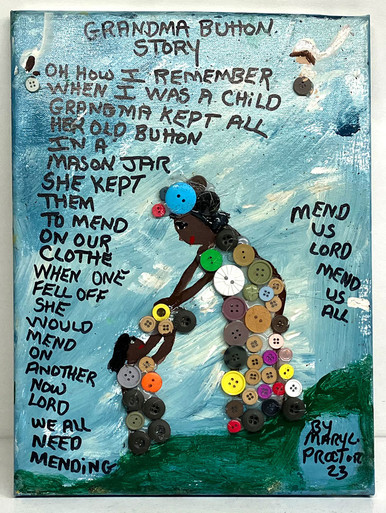 GRANDMA BUTTON.
STORY
OH HOW I REMEMBER
WHEN I WAS A CHILD
GRANDMA KEPT ALL
HER OLD BUTTON
IN A
MASON JAR
SHE KEPT
THEM
TO MEND
ON OUR
CLOTHE
WHEN ONE
FELL OFF
SHE
WOULD
MEND
ON
ANOTHER
NOW
LORD
WE ALL
NEED
MENDING
MEND
US
LORD
MEND
US
ALL
BY
MARY L.
PROCTOR
23